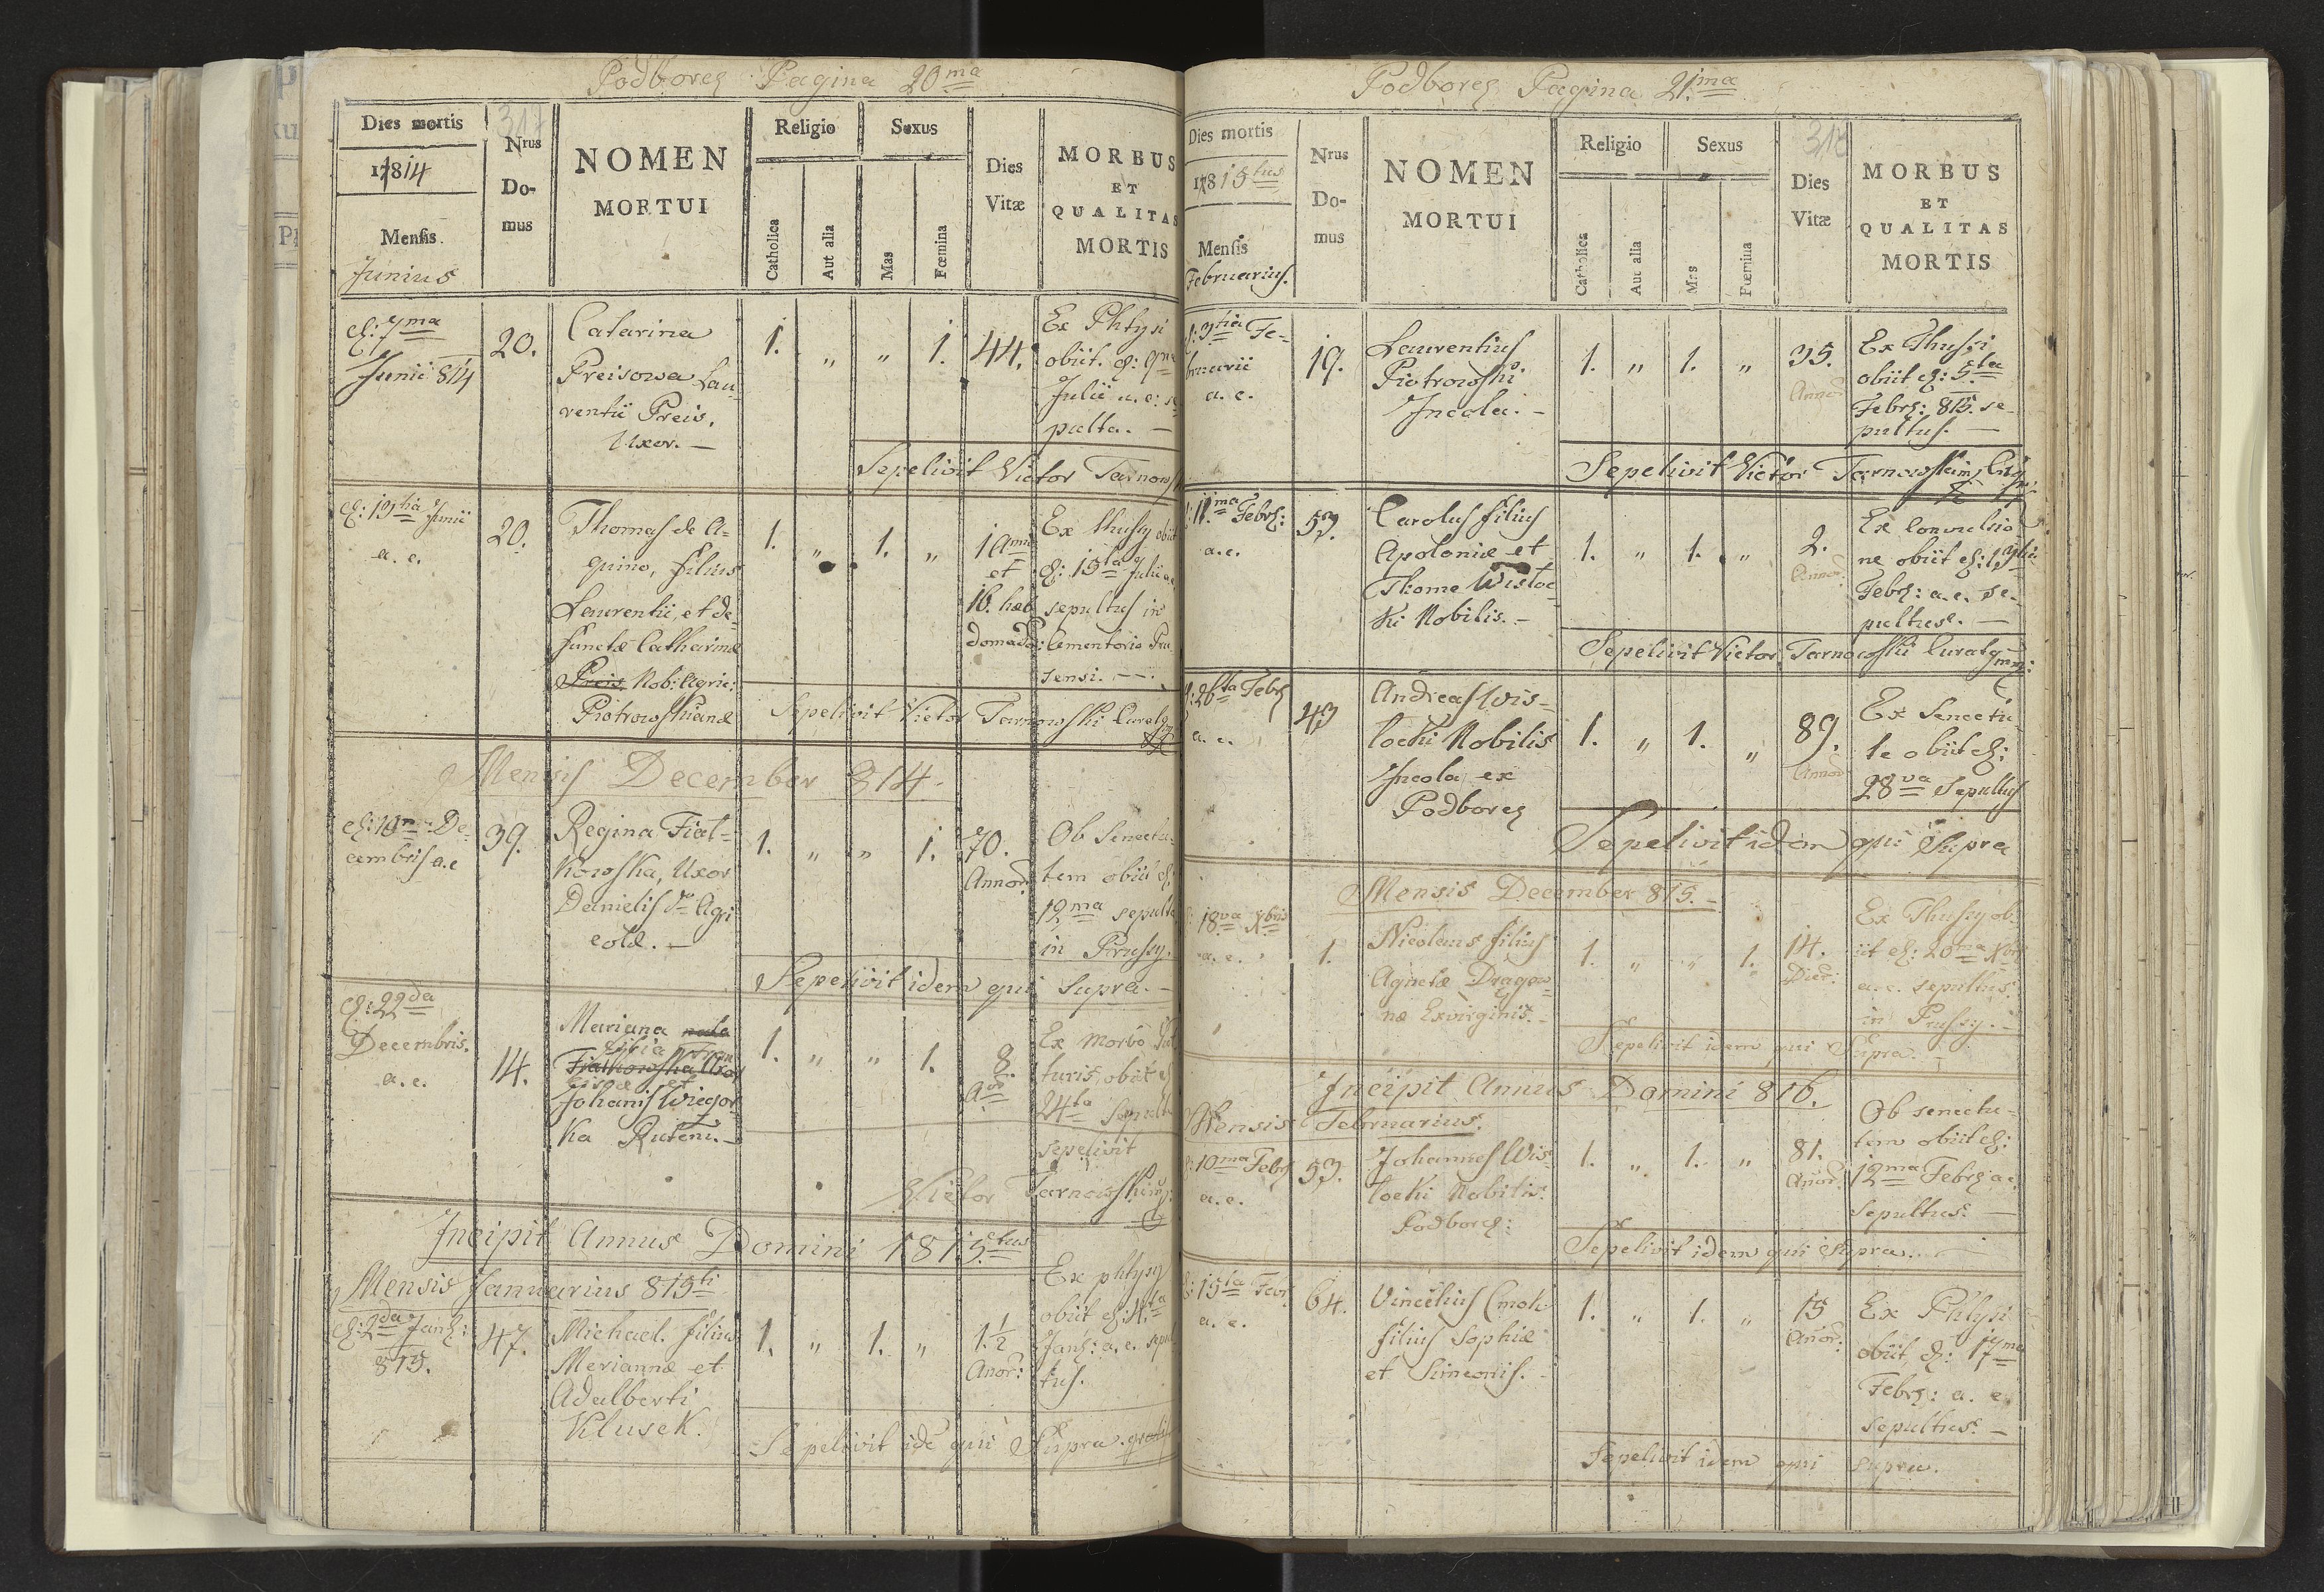 Podborez Pagina 20ma
Dies mortis
1814
Mensis
Junius
Nrus
Do-
mus
NOMEN
MORTUI
Religio
Catholica
Aut alia
Sexus
Mas
Fœmina
Dies
Vitæ
MORBUS
ET
QUALITAS
MORTIS
d: 7ma
Junii 814
20.
Catarina
Preisowa Lau-
rentii Preis.
Uxor. —
1. „ „ 1. 44.
Ex Phtysi
obiit. d: 9na
Julii a. c: se
pulta. —
Sepelivit Victor Tarnows
d: 13tia Junii
a. c.
20.
Thomas de A=
quino, filius
Laurentii, et de=
functæ Catharinæ
Preis. Nob: Agric:
Piotrowskianæ
1. „ 1. „
1 Anni
et
16. heb
domadar:
Ex thussy obiit
d: 15ta Julii a.c
sepultus in
Cementerio Pru
sensi. —
Sepelivit Victor Tarnowski Curatg
Mensis December 814.
d: 10ma De-
cembris a.c
39.
Regina Fiał-
kowska, Uxor
Danielis de Agri
colæ. —
1. „ „ 1. 70.
Annor:
Ob Senectu-
tem obiit d:
12ma sepulta
in Prussy.
Sepelivit idem qui supra. —
d: 22da
Decembris.
a. c.
14.
Mariana nata
filia Fran
Fiałkowska Uxor
cisca et
Johanis Wiegor
ka Ruteni. —
1. „ „ 1. 8.
Aor
Ex morbo
turis, obiit d
24ta Sepulta
sepelivit
Victor Tarnowski mp:
Incipit Annus Domini 1815.tus
Mensis Januarius 815ti
d: 2da Janz:
815.
47.
Michael. filius
Mariannæ et
Adalberti
Klusek.
1. „ 1. „ 1 1/2
Anor:
Ex phtysy
obiit d: 4ta
Janz: a. c. sepul
tus.
Sepelivit ide qui Supra. gratis
Podborez Pagina 21.ma
Dies mortis
1815tus
Mensis
Februarius.
Nrus
Do-
mus
NOMEN
MORTUI
Religio
Catholica
Aut alia
Sexus
Mas
Fœmina
318
Dies
Vitæ
MORBUS
ET
QUALITAS
MORTIS
d: 3tia Fe-
bruarii
a. c.
19.
Laurentius
Piotrowski
Incola. —
1. „ 1. „ 35.
Annor
Ex Thussi
obiit d: 5.ta
Febrz: 815. se-
pultus. —
Sepelivit Victor Tarnowski
d: 11.ma Febrz:
a. c.
53.
Carolus filius
Apoloniæ et
Thome Wisłoc
ki Nobilis. —
1. „ 1. „ 2.
Annor.
Ex Convulsio
ne obiit d: 13tia
Febrz: a. c. se-
pultus. —
Sepelivit Victor Tarnowski Curatg mp:
d: 26ta Febrz
a. c.
43
Andreas Wis-
łocki Nobilis
Incola, ex
Podborez
1. „ 1. „ 89.
Annor
Ex Senectu-
te obiit d:
28va Sepultus
Sepelivit idem qui Supra
Mensis December 815. —
d: 18va Xbris
a. c.
1.
Nicolaus filius
Agnetæ Dragow-
næ Exvirginis. —
1. „ „ 1. 14.
Dier:
Ex Thussy ob-
iit d: 20ma Xbris
a. c. sepultus.
in Prussy. —
Sepelivit idem qui Supra. —
Incipit Annus Domini 816.
Mensis Februarius.
d: 10ma Febrz
a. c.
53.
Johannes Wis-
łocki Nobilis.
Podborez:
1. „ 1. „ 81.
Anor:
Ob senectu-
tem obiit d:
12ma Febrz a c.
Sepultus. —
Sepelivit idem qui Supra.
d: 15ta Febr:
a. c.
64.
Vincetius Cmok
filius Sophiæ
et Simeonis. —
1. „ 1. „ 15
Anor:
Ex Phtysi
obiit, d: 17ma
Febrz: a. c.
sepultus. —
Sepelivit idem qui supra.